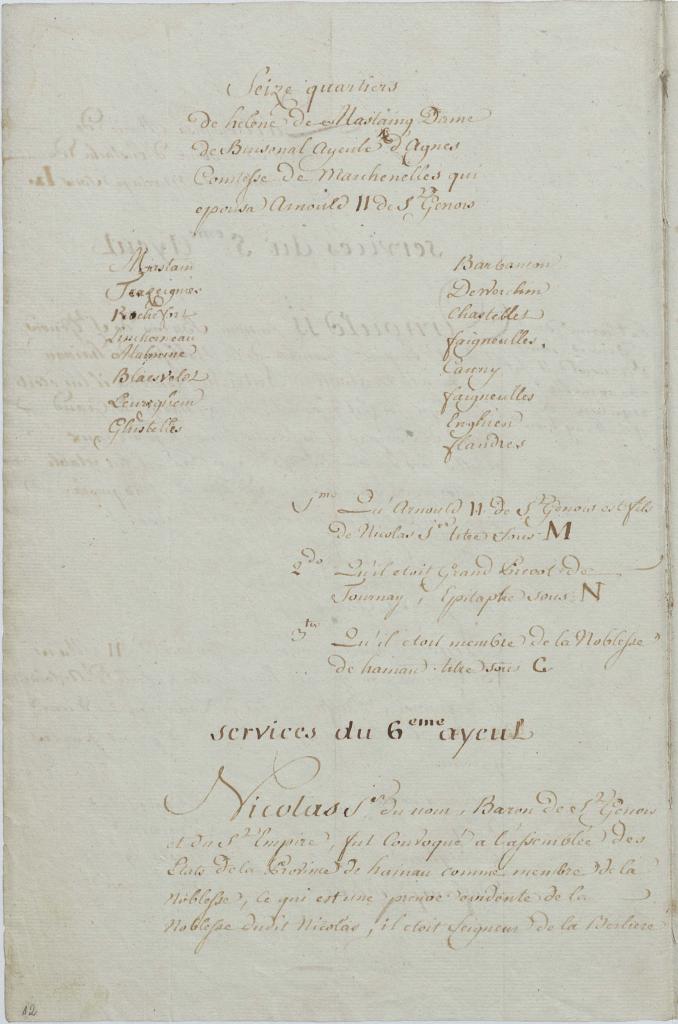 Seize quartiers
de helene de Haslaing Dame
de Buisonal Ayeule d'Agnes
Comtesse de Marchenelles qui
epousa Arnould II de St Genois
Haslain
Traseignies
Rochefort
Luxhoneau
Malmaine
Blaesveldt
Leureghem
Ghistelles
Barbancon
De Werchin
Chastellet
faigneulles.
Cauny
faigneulles
Enghien
flandres
1mo Qu'Arnould II de St Genois est fils
de Nicolas Ier titre sous M
2do Qu'il etoit Grand Prevot de
Tournay, Epitaphe sous N
3tio Qu'il etoit membre de la Noblesse
de hainau titre sous C
services du 6eme ayeul
Nicolas Ier du nom, Baron de St Genois
et du St Empire, fut Convoqué a l'assemblée des
Etats de la Province de hainau comme membre de la
Noblesse, ce qui est une preuve evidente de la
Noblesse dudit Nicolas, il etoit Seigneur de la Berliere
12